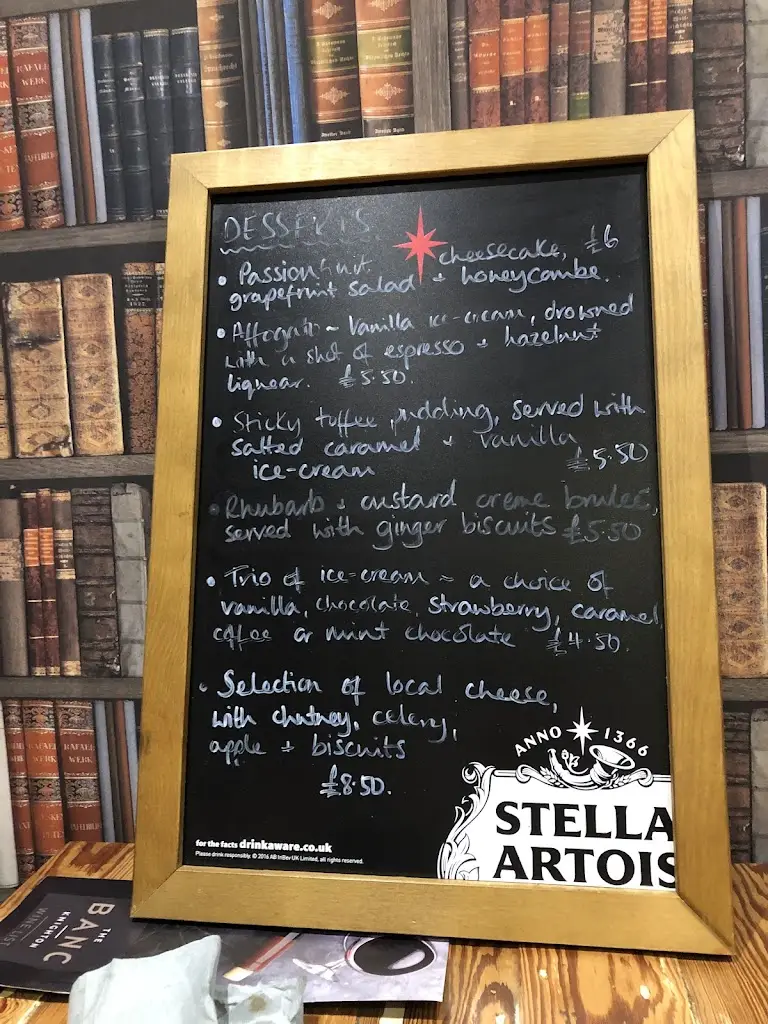 RAFAEL
WERK
DESSERTS
• Passionfruit cheesecake, £6
grapefruit salad + honeycombe.
• Affogato ~ Vanilla ice-cream, drowned
with a shot of espresso + hazelnut
liquear. £5.50.
• Sticky toffee pudding, served with
salted caramel + vanilla
ice-cream £5.50
• Rhubarb + custard creme brulee,
served with ginger biscuits £5.50
• Trio of ice-cream ~ a choice of
vanilla, chocolate, strawberry, caramel
coffee or mint chocolate £4.50.
• Selection of local cheese,
with chutney, celery,
apple + biscuits
£8.50.
ANNO 1366
STELLA
ARTOIS
for the facts drinkaware.co.uk
Please drink responsibly. © 2016 AB InBev UK Limited, all rights reserved.
RAFAEL
WERK
RAFAEL
WERK
THE
BANC
KNIGHTON
WINE LIST